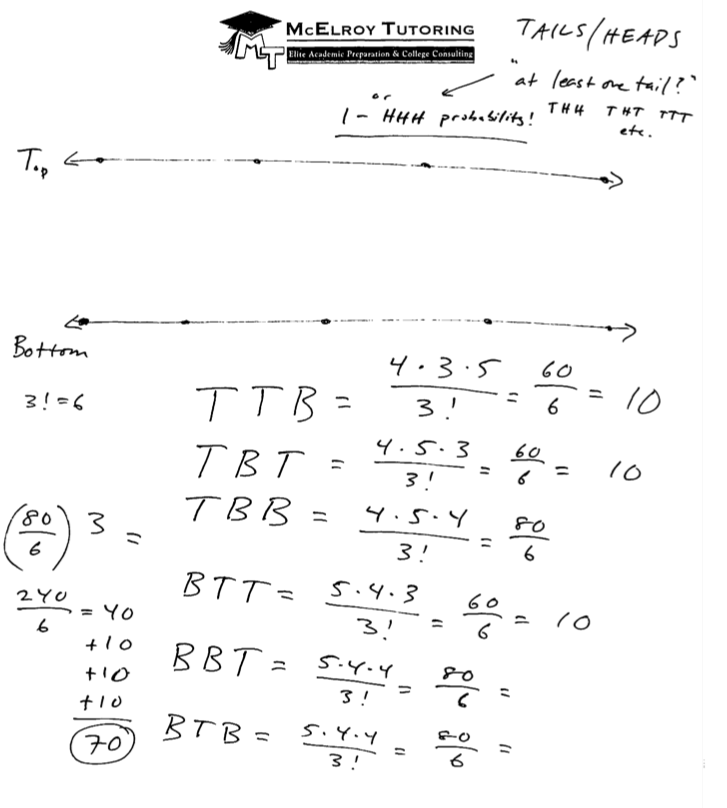 McElroy Tutoring
Elite Academic Preparation & College Consulting
MT
TAILS/HEADS
"at least one tail?"
or
1 - HHH probability!
THH THT TTT
etc.
Top
Bottom
3! = 6
TTB = 4·3·5/3! = 60/6 = 10
TBT = 4·5·3/3! = 60/6 = 10
TBB = 4·5·4/3! = 80/6
(80/6) 3 =
BTT = 5·4·3/3! = 60/6 = 10
240/6 = 40
+10
BBT = 5·4·4/3! = 80/6 =
+10
+10
70
BTB = 5·4·4/3! = 80/6 =